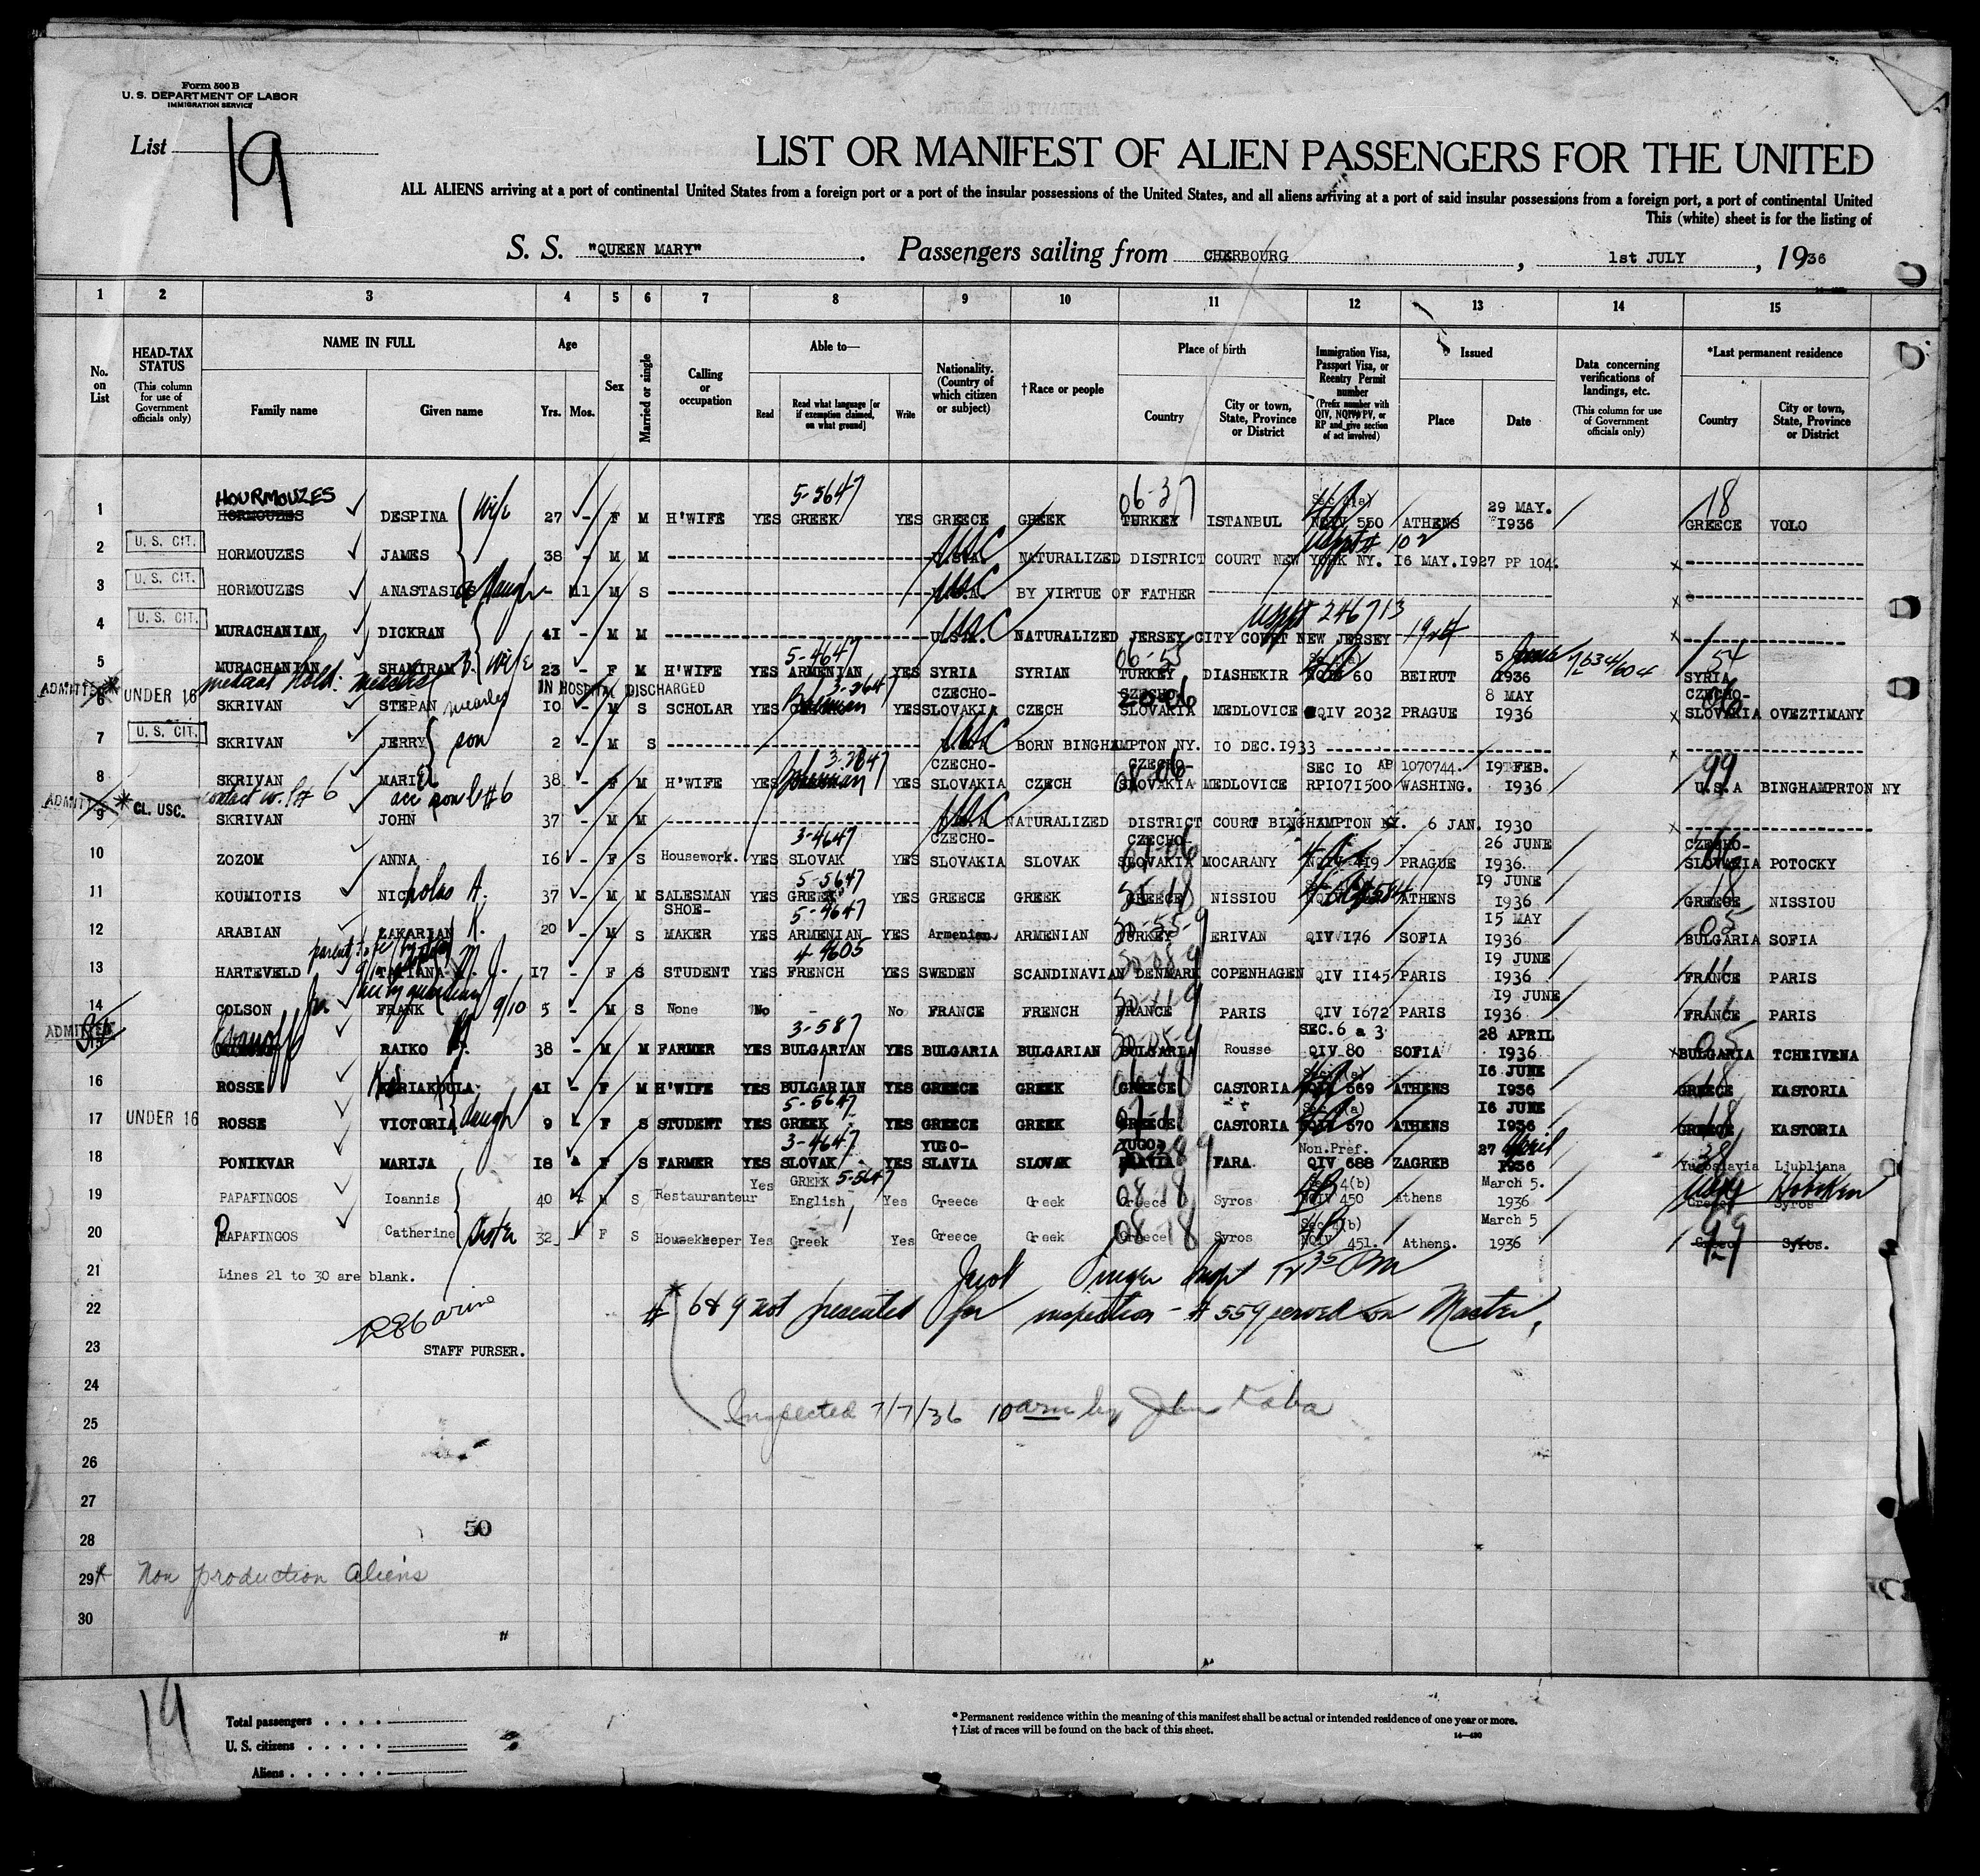 Form 500 B
U. S. DEPARTMENT OF LABOR
IMMIGRATION SERVICE
List 19
LIST OR MANIFEST OF ALIEN PASSENGERS FOR THE UNITED
ALL ALIENS arriving at a port of continental United States from a foreign port or a port of the insular possessions of the United States, and all aliens arriving at a port of said insular possessions from a foreign port, a port of continental United
This (white) sheet is for the listing of
S. S. "QUEEN MARY" . Passengers sailing from CHERBOURG , 1st JULY , 1936
1 2 3 4 5 6 7 8 9 10 11 12 13 14 15
No. on List
HEAD-TAX STATUS (This column for use of Government officials only)
NAME IN FULL
Family name Given name
Age
Yrs. Mos.
Sex
Married or single
Calling or occupation
Able to—
Read Read what language [or if exemption claimed, on what ground] Write
Nationality. (Country of which citizen or subject)
†Race or people
Place of birth
Country City or town, State, Province or District
Immigration Visa, Passport Visa, or Reentry Permit number (Prefix number with QIV, NQIV, PV, or RP and give section of act involved)
Issued
Place Date
Data concerning verifications of landings, etc. (This column for use of Government officials only)
*Last permanent residence
Country City or town, State, Province or District
HOURMOUZES 5-5647 06-37 Sec 4(a) 29 MAY. 18
1 HORMOUZES DESPINA Wife 27 - F M H'WIFE YES GREEK YES GREECE GREEK TURKEY ISTANBUL NQIV 550 ATHENS 1936 GREECE VOLO
2 U. S. CIT. HORMOUZES JAMES 38 - M M U.S.A. USC NATURALIZED DISTRICT COURT NEW YORK NY. 16 MAY.1927 PP 104.
3 U. S. CIT. HORMOUZES ANASTASIOS Daugh - 11 M S U.S.A. USC BY VIRTUE OF FATHER
4 U. S. CIT. MURACHANIAN DICKRAN 41 - M M U.S.A. USC NATURALIZED JERSEY CITY COURT NEW JERSEY 246713 1924
5-4647 06-55 5 June 54
5 MURACHANIAN SHAMIRAM Wife 23 - F M H'WIFE YES ARMENIAN YES SYRIA SYRIAN TURKEY DIASHEKIR 60 BEIRUT 1936 SYRIA
medical hold: measles IN HOSPITAL DISCHARGED 3-3647 CZECHO- CZECHO- 8 MAY CZECHO-
ADMITTED 6 UNDER 16 SKRIVAN STEPAN measles 10 - M S SCHOLAR YES YES SLOVAKIA CZECH SLOVAKIA MEDLOVICE QIV 2032 PRAGUE 1936 SLOVAKIA OVEZTIMANY
7 U. S. CIT. SKRIVAN JERRY son 2 - M S USC BORN BINGHAMPTON NY. 10 DEC.1933
CZECHO- CZECHO- SEC 10 AP 1070744. 19 FEB. 99
8 SKRIVAN MARIE 38 - F M H'WIFE YES YES SLOVAKIA CZECH SLOVAKIA MEDLOVICE RP1071500 WASHING. 1936 U.S.A BINGHAMPRTON NY
contact w. l# 6 acc son l#6
ADMITTED 9 CL. USC. SKRIVAN JOHN 37 - M M USC NATURALIZED DISTRICT COURT BINGHAMPTON NY. 6 JAN. 1930
3-4647 CZECHO- CZECHO- 26 JUNE CZECHO-
10 ZOZOM ANNA 16 - F S Housework. YES SLOVAK YES SLOVAKIA SLOVAK SLOVAKIA MOCARANY 419 PRAGUE 1936. SLOVAKIA POTOCKY
5-5647 19 JUNE 18
11 KOUMIOTIS NICholas A. 37 - M M SALESMAN YES GREEK YES GREECE GREEK GREECE NISSIOU ATHENS 1936 GREECE NISSIOU
SHOE- 5-4647 15 MAY 05
12 ARABIAN ZAKARIAN K. 20 - M S MAKER YES ARMENIAN YES Armenian ARMENIAN TURKEY ERIVAN QIV 176 SOFIA 1936 BULGARIA SOFIA
4-4605 19 JUNE
13 HARTEVELD TATIANA M. J. 17 - F S STUDENT YES FRENCH YES SWEDEN SCANDINAVIAN DENMARK COPENHAGEN QIV 1145 PARIS 1936 FRANCE PARIS
19 JUNE
14 COLSON Jr FRANK 9/10 5 - M S None No - No FRANCE FRENCH FRANCE PARIS QIV 1672 PARIS 1936 FRANCE PARIS
3-587 SEC.6 a 3 28 APRIL 05
ADMITTED RAIKO 38 - M M FARMER YES BULGARIAN YES BULGARIA BULGARIAN BULGARIA Rousse QIV 80 SOFIA 1936 BULGARIA TCHEIVENA
16 JUNE 18
16 ROSSE KIRIAKOULA 41 - F M H'WIFE YES BULGARIAN YES GREECE GREEK GREECE CASTORIA 569 ATHENS 1936 GREECE KASTORIA
5-5647 Sec 4(a) 16 JUNE 18
17 UNDER 16 ROSSE VICTORIA daugh 9 - F S STUDENT YES GREEK YES GREECE GREEK GREECE CASTORIA 570 ATHENS 1936 GREECE KASTORIA
3-4647 YUGO- YUGO- Non.Pref. 27 April 38
18 PONIKVAR MARIJA 18 - F S FARMER YES SLOVAK YES SLAVIA SLOVAK SLAVIA FARA QIV 688 ZAGREB 1936 Yugoslavia Ljubljana
Yes GREEK 5-5647 Sec 4(b) March 5. Hoboken
19 PAPAFINGOS Ioannis 40 - M S Restauranteur English Yes Greece Greek Greece Syros NQIV 450 Athens 1936 Greece Syros
08-18 Sec 4(b) March 5 99
20 PAPAFINGOS Catherine Sister 32 - F S Housekeeper Yes Greek Yes Greece Greek Greece Syros NQIV 451. Athens. 1936 Greece Syros.
21 Lines 21 to 30 are blank. Jacob
22 # 6 & 9 not presented for inspection - # 559 served on Master.
23 STAFF PURSER.
24
25 Inspected 7/7/36 10 am by John Kaba
26
27
28 50
29 Non production aliens
30
19
Total passengers . . . .
U. S. citizens . . . . .
Aliens . . . . . .
* Permanent residence within the meaning of this manifest shall be actual or intended residence of one year or more.
† List of races will be found on the back of this sheet.
14—430